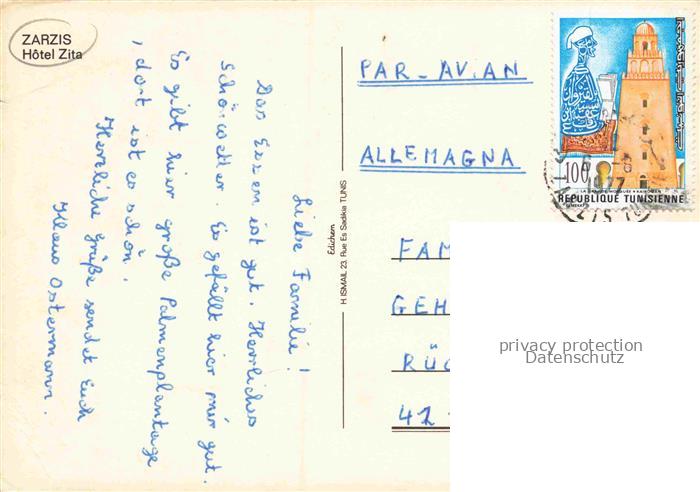 ZARZIS
Hôtel Zita
Liebe Familie!
Das Essen ist gut. Herrliches
Schönwetter. Es gefällt hier mir gut.
Es gibt hier große Palmenplantage
, dort ist es schön.
Herzliche Grüße sendet Euch
Klaus Ostermann.
Edichem
H. ISMAIL 23, Rue Es Sadikia TUNIS
PAR-AVIAN
ALLEMAGNA
FAM
GEH
RÜC
42
100
LA GRANDE MOSQUEE KAIROUAN
REPUBLIQUE TUNISIENNE
1977
privacy protection
Datenschutz